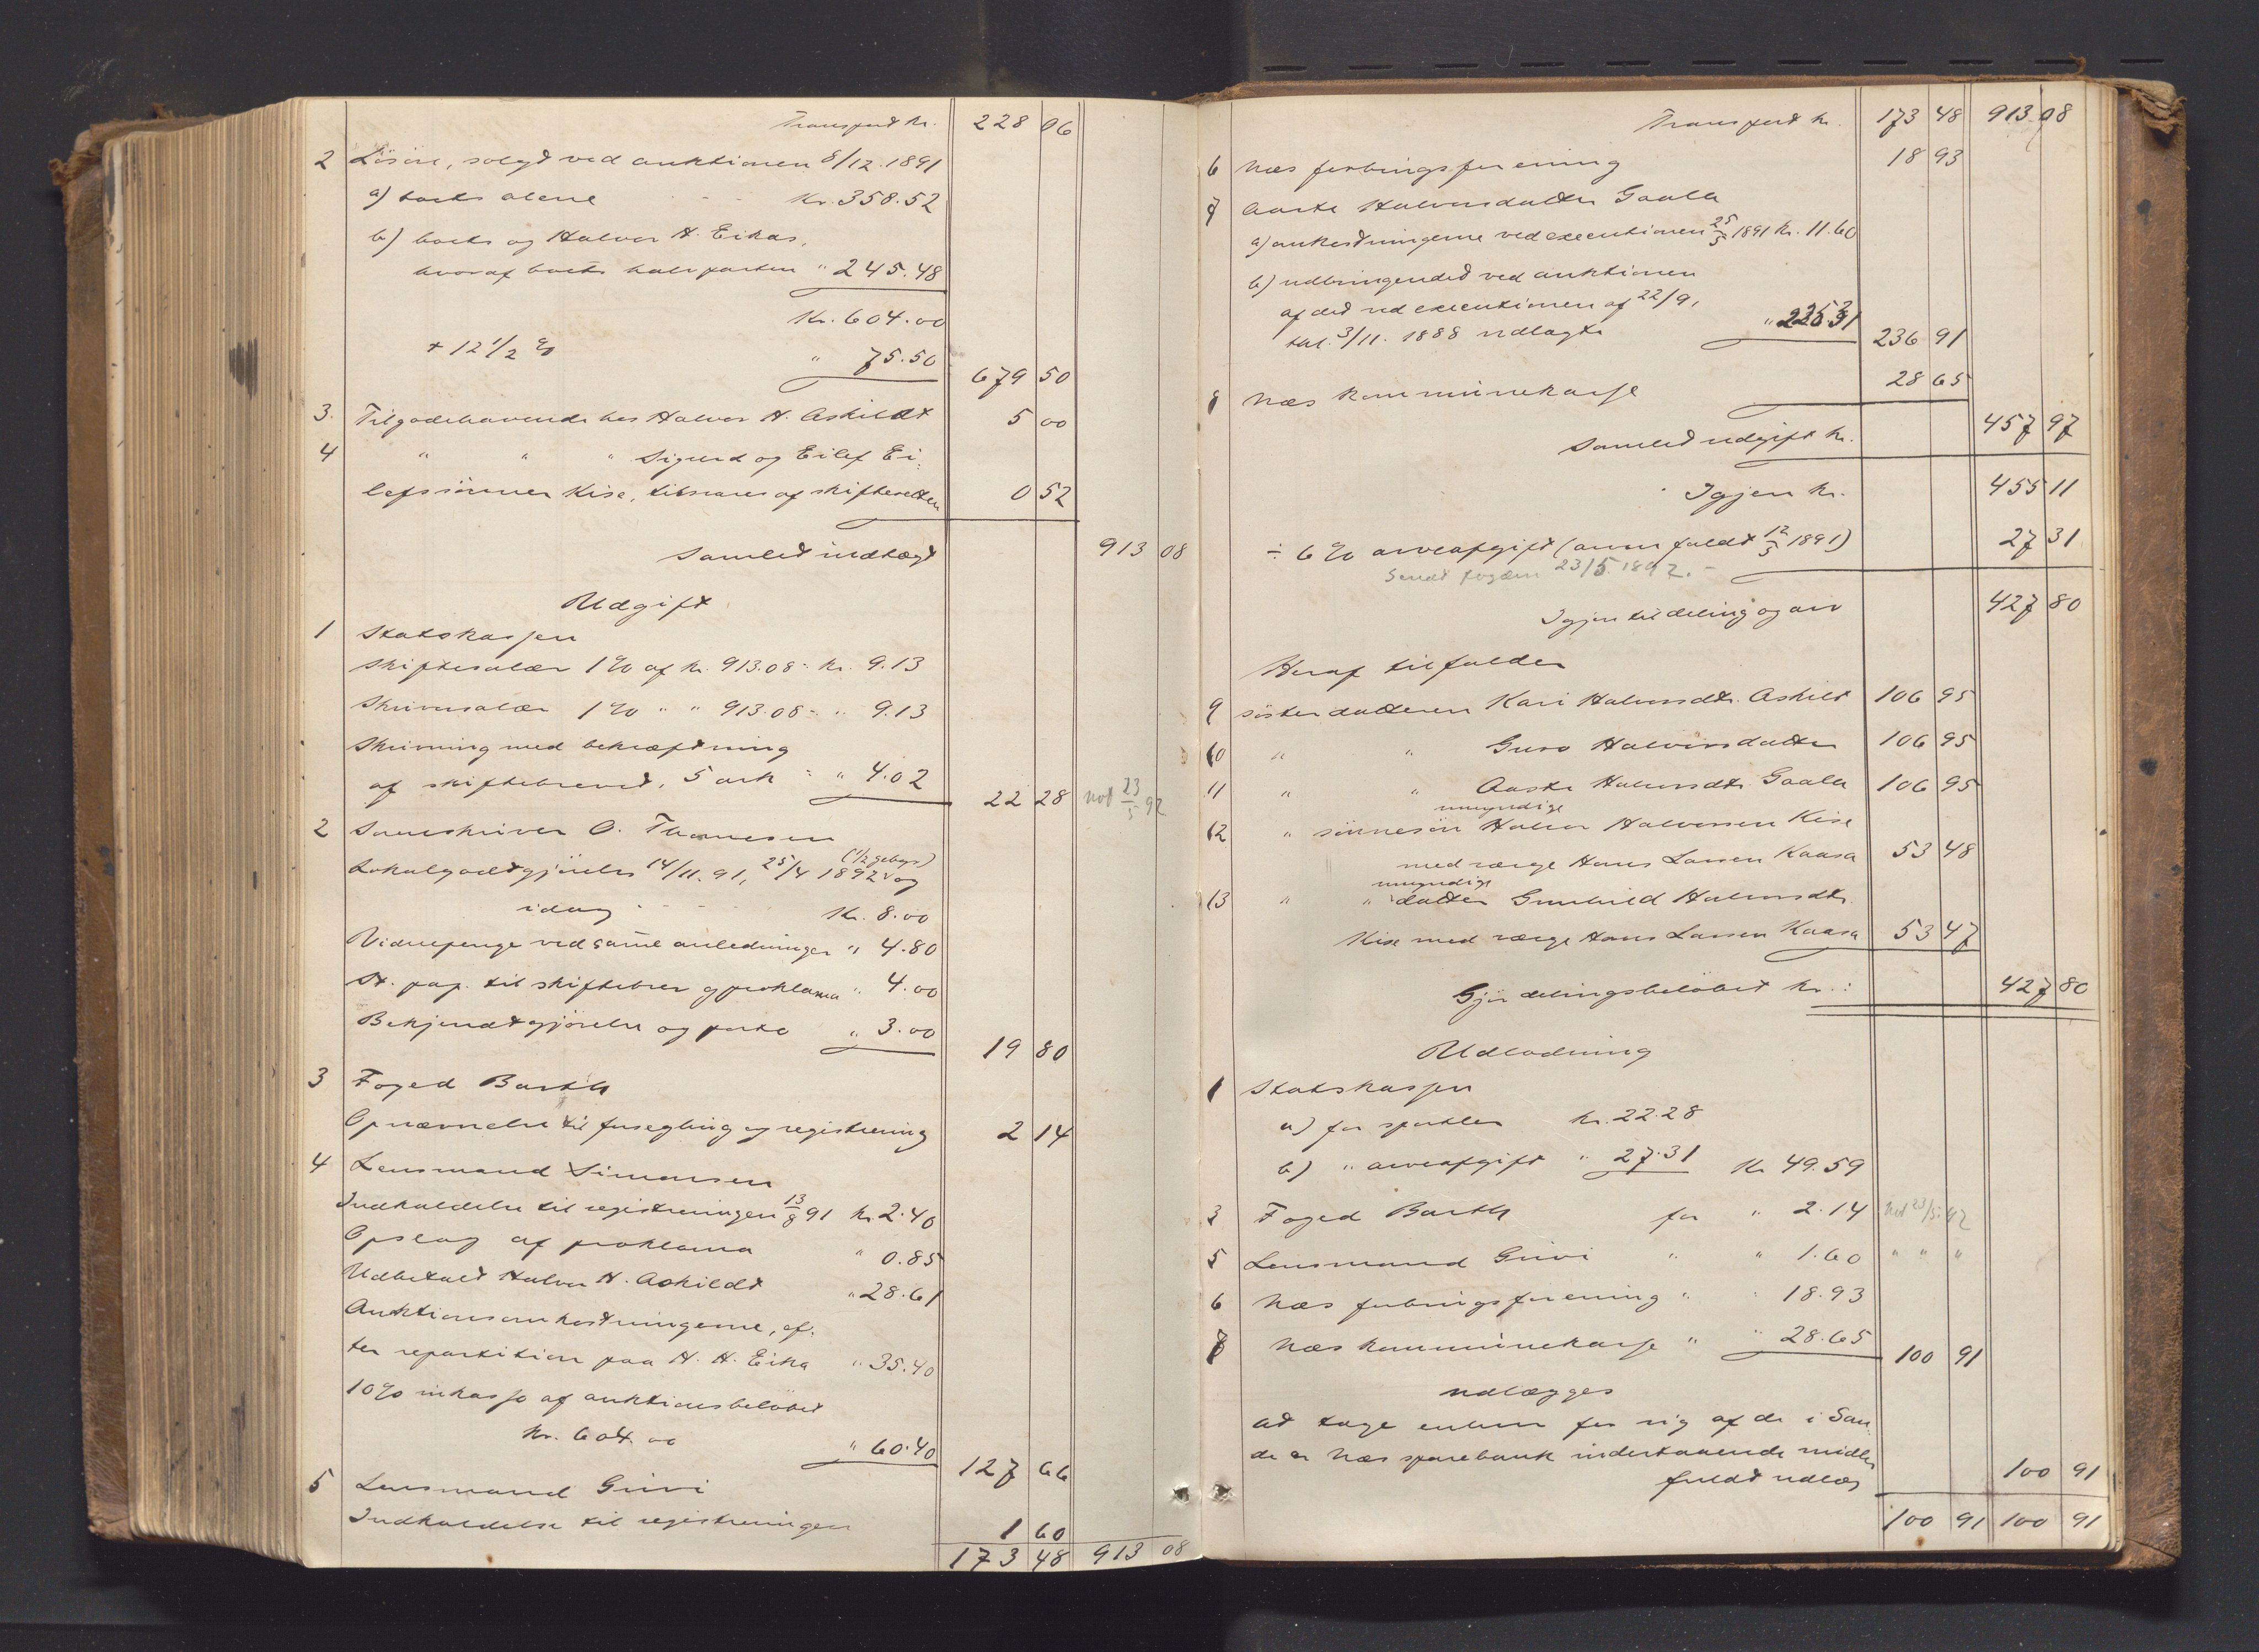 Transport kr. 228 06
2 Løsøre, solgt ved auktionen 8/12. 1891
a) boets alene - - kr. 358.52
b) boets og Halvor H. Eikas,
hvoraf boets halvparten " 245.48
Kr. 604.00
+ 12 1/2 % " 75.50 679 50
3. Tilgodehavende hos Halvor H. Askildt 5 00
4 " " " Sigurd og Eilef Ei-
lefsønner Kise, tilsvares af skifteretten 0 52
Samlet indtægt 913 08
Udgift
1 Statskassen
Skiftesalær 1% af kr. 913.08 = kr. 9.13
Skriversalær 1% " " 913.08 = " 9.13
Skrivning med bekræftning
af skiftebrevet, 5 ark = " 4.02 22 28 not 23/5 92
2 Sorenskriver O. Thomesen
Lokalgodtgjørelse 14/11. 91, 25/4 1892 (1/2 gebyr) og
idag - - - Kr. 8.00
Vidnepenge ved samme anledninger " 4.80
St. pap. til skiftebrev og proklama " 4.00
Bekjendtgjørelse og porto " 3.00 19 80
3 Foged Barth
Opnævnelse til forsegling og registrering 2 14
4 Lensmand Simonsen
Indkaldelse til registreringen 13/8 91 kr. 2.40
Opslag af proklama " 0.85
Udbetalt Halvor H. Askildt " 28.61
Auktionsomkostningerne, ef-
ter repartition paa H. H. Eika " 35.40
10% inkasso af auktionsbeløbet
kr. 604.00 " 60.40 127 66
5 Lensmand Grivi
Indkaldelse til registreringen 1 60
173 48 913 08
Transport kr. 173 48 913 08
6 Næs forbrugsforening 18 93
7 Aaste Halvorsdatter Gaala
a) omkostningerne ved executionen 25/5 1891 kr. 11.60
b) udbringendet ved auktionen
af det ved executionen af 22/9,
thl. 3/11. 1888 udlagte " 225.31 236 91
8 Næs kommunekasse 28 65
Samlet udgift kr. 457 97
Igjen kr. 455 11
÷ 6% arveafgift (arven faldt 12/5 1891) 27 31
Sendt fogden 23/5. 1892. -
Igjen til deling og arv 427 80
Heraf tilfalder
9 søsterdatteren Kari Halvorsdtr. Askilt 106 95
10 " " Guro Halvorsdatter 106 95
11 " " Aaste Halvorsdtr. Gaala 106 95
12 " sønnesøn umyndige Halvor Halvorsen Kise
med værge Hans Larsen Kaasa 53 48
13 " " datter umyndige Gunhild Halvorsdtr.
Kise med værge Hans Larsen Kaasa 53 47
Gjør delingsbeløbet kr.: 427 80
Udlodning
1 Statskassen
a) for sportler kr. 22.28
b) " arveafgift " 27.31 Kr 49.59
3 Foged Barth for " 2.14 not 23/5. 92
5 Lensmand Grivi " " 1.60 " " "
6 Næs forbrugsforening " " 18.93
8 Næs kommunekasse " " 28.65 100 91
udlægges
at tage enhver for sig af de i Sau-
de og Næs sparebank indestaaende midler
fuldt udlæg 100 91
100 91 100 91